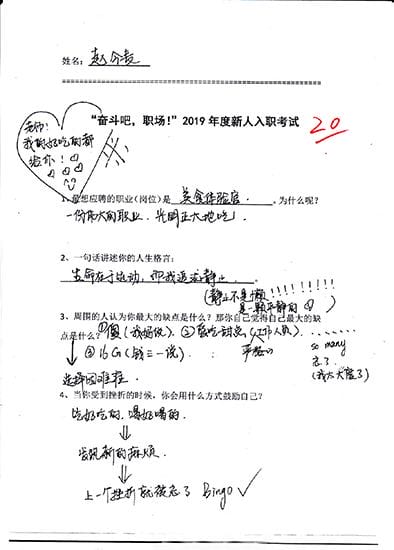 姓名：赵今麦
“奋斗吧，职场！”2019 年度新人入职考试
20
老师!
我的好吃的都
给你!
1、最想应聘的职业(岗位)是 美食体验官. 。为什么呢?
一份伟大的职业，光明正大地吃!
2、一句话讲述你的人生格言:
生命在于运动，而我适合静止.
(静止不是懒!!!!!!!!
是一颗平静的
3、周围的人认为你最大的缺点是什么? 那你自己觉得自己最大的缺
点是什么? ①傻(我好像) ②爱吃甜点(工作人员)......
so many
忘了
(我太大意了)
选择困难症
4、当你受到挫折的时候，你会用什么方式鼓励自己?
吃好吃的，喝好喝的.
发现新的麻烦.
上一个挫折就被忘了 Bingo